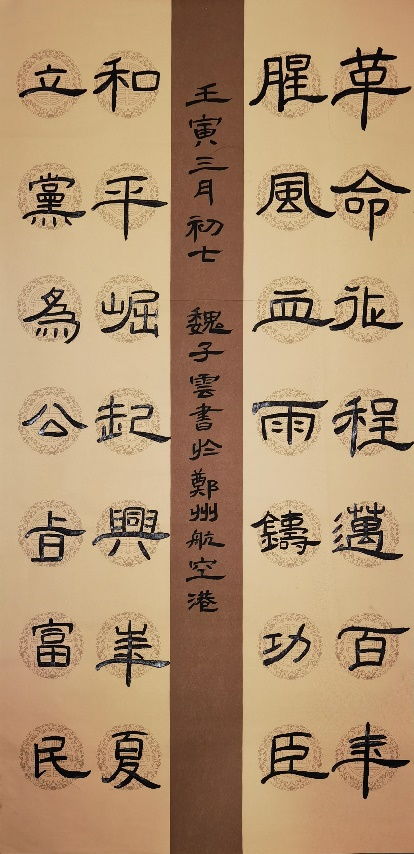 革命征程邁百年
腥風血雨鑄功臣
壬寅三月初七 魏子雲書於鄭州航空港
和平崛起興華夏
立黨為公旨富民